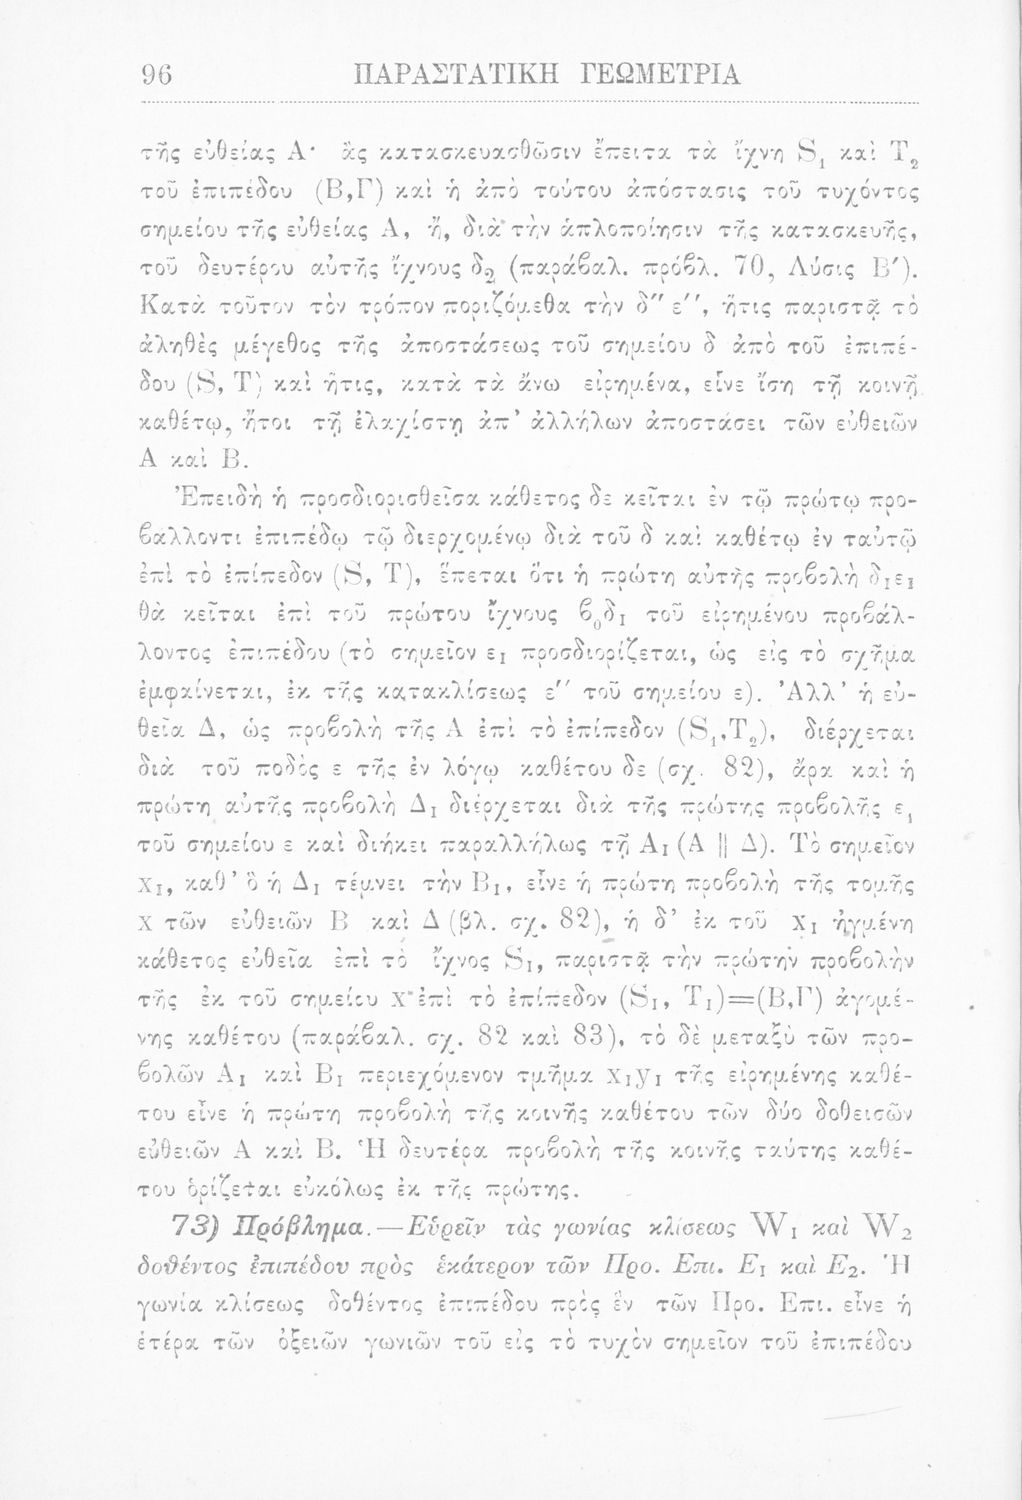 96 ΠΑΡΑΣΤΑΤΙΚΗ ΓΕΩΜΕΤΡΙΑ
τῆς εὐθείας Α· ἂς κατασκευασθῶσιν ἔπειτα τὰ ἴχνη S₁ καὶ T₂
τοῦ ἐπιπέδου (Β,Γ) καὶ ἡ ἀπὸ τούτου ἀπόστασις τοῦ τυχόντος
σημείου τῆς εὐθείας Α, ἤ, διὰ τὴν ἁπλοποίησιν τῆς κατασκευῆς,
τοῦ δευτέρου αὐτῆς ἴχνους δ₂ (παράβαλ. πρόβλ. 70, Λύσις Β′).
Κατὰ τοῦτον τὸν τρόπον ποριζόμεθα τὴν δ″ ε″, ἥτις παριστᾷ τὸ
ἀληθὲς μέγεθος τῆς ἀποστάσεως τοῦ σημείου δ ἀπὸ τοῦ ἐπιπέ-
δου (S, T) καὶ ἥτις, κατὰ τὰ ἄνω εἰρημένα, εἶνε ἴση τῇ κοινῇ
καθέτῳ, ἤτοι τῇ ἐλαχίστῃ ἀπ’ ἀλλήλων ἀποστάσει τῶν εὐθειῶν
Α καὶ Β.
Ἐπειδὴ ἡ προσδιορισθεῖσα κάθετος δε κεῖται ἐν τῷ πρώτῳ προ-
βάλλοντι ἐπιπέδῳ τῷ διερχομένῳ διὰ τοῦ δ καὶ καθέτῳ ἐν ταὐτῷ
ἐπὶ τὸ ἐπίπεδον (S, T), ἕπεται ὅτι ἡ πρώτη αὐτῆς προβολὴ δ₁ε₁
θὰ κεῖται ἐπὶ τοῦ πρώτου ἴχνους β₀δ₁ τοῦ εἰρημένου προβάλ-
λοντος ἐπιπέδου (τὸ σημεῖον ε₁ προσδιορίζεται, ὡς εἰς τὸ σχῆμα
ἐμφαίνεται, ἐκ τῆς κατακλίσεως ε″ τοῦ σημείου ε). Ἀλλ’ ἡ εὐ-
θεῖα Δ, ὡς προβολὴ τῆς Α ἐπὶ τὸ ἐπίπεδον (S₁,T₂), διέρχεται
διὰ τοῦ ποδὸς ε τῆς ἐν λόγῳ καθέτου δε (σχ. 82), ἄρα καὶ ἡ
πρώτη αὐτῆς προβολὴ Δ₁ διέρχεται διὰ τῆς πρώτης προβολῆς ε₁
τοῦ σημείου ε καὶ διήκει παραλλήλως τῇ Α₁ (Α || Δ). Τὸ σημεῖον
χ₁, καθ’ ὃ ἡ Δ₁ τέμνει τὴν Β₁, εἶνε ἡ πρώτη προβολὴ τῆς τομῆς
χ τῶν εὐθειῶν Β καὶ Δ (βλ. σχ. 82), ἡ δ’ ἐκ τοῦ χ₁ ἠγμένη
κάθετος εὐθεῖα ἐπὶ τὸ ἴχνος S₁, παριστᾷ τὴν πρώτην προβολὴν
τῆς ἐκ τοῦ σημείου χ ἐπὶ τὸ ἐπίπεδον (S₁, T₁)=(Β,Γ) ἀγομέ-
νης καθέτου (παράβαλ. σχ. 82 καὶ 83), τὸ δὲ μεταξὺ τῶν προ-
βολῶν Α₁ καὶ Β₁ περιεχόμενον τμῆμα χ₁y₁ τῆς εἰρημένης καθέ-
του εἶνε ἡ πρώτη προβολὴ τῆς κοινῆς καθέτου τῶν δύο δοθεισῶν
εὐθειῶν Α καὶ Β. Ἡ δευτέρα προβολὴ τῆς κοινῆς ταύτης καθέ-
του ὁρίζεται εὐκόλως ἐκ τῆς πρώτης.
73) Πρόβλημα.—Εὑρεῖν τὰς γωνίας κλίσεως W₁ καὶ W₂
δοθέντος ἐπιπέδου πρὸς ἑκάτερον τῶν Προ. Επι. Ε₁ καὶ Ε₂. Ἡ
γωνία κλίσεως δοθέντος ἐπιπέδου πρὸς ἓν τῶν Προ. Επι. εἶνε ἡ
ἑτέρα τῶν ὀξειῶν γωνιῶν τοῦ εἰς τὸ τυχὸν σημεῖον τοῦ ἐπιπέδου